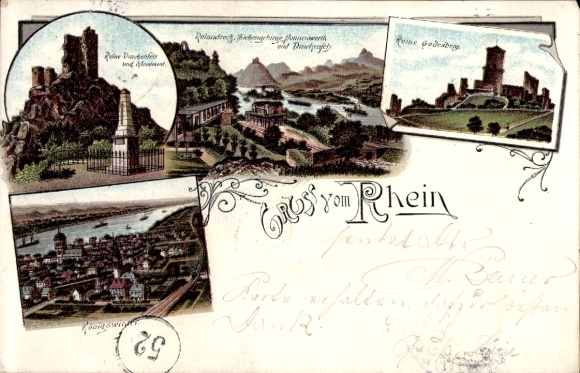 Ruine Drachenfels
und Monument.
Rolandseck, Siebengebirge, Nonnenwerth
und Drachenfels
Ruine Godesberg.
Gruss vom Rhein
sendet alte
M. Bauer
Karte erhalten, dafür besten
Dank!
Königswinter.
52